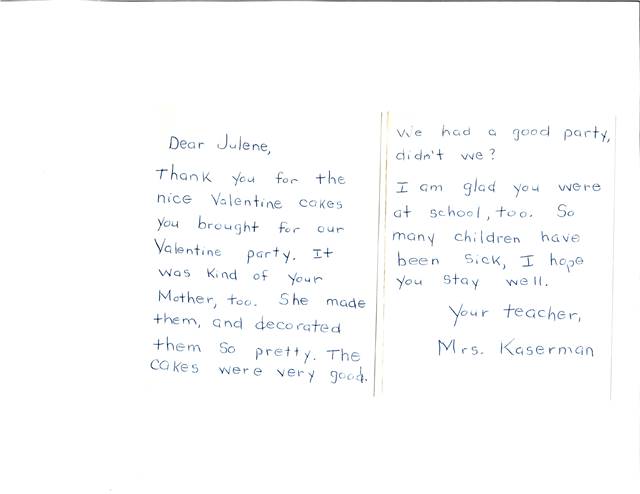 Dear Julene,
Thank you for the
nice Valentine cakes
you brought for our
Valentine party. It
was kind of your
Mother, too. She made
them, and decorated
them so pretty. The
cakes were very good.
We had a good party,
didn't we?
I am glad you were
at school, too. So
many children have
been sick, I hope
you stay well.
Your teacher,
Mrs. Kaserman